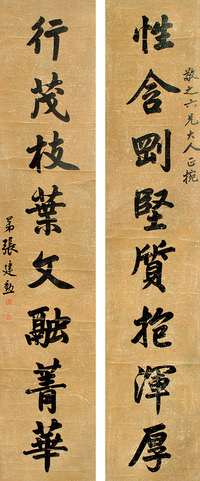 敬之六兄大人正捥
性含剛堅質抱渾厚
行茂枝葉文融菁華
弟張建勳